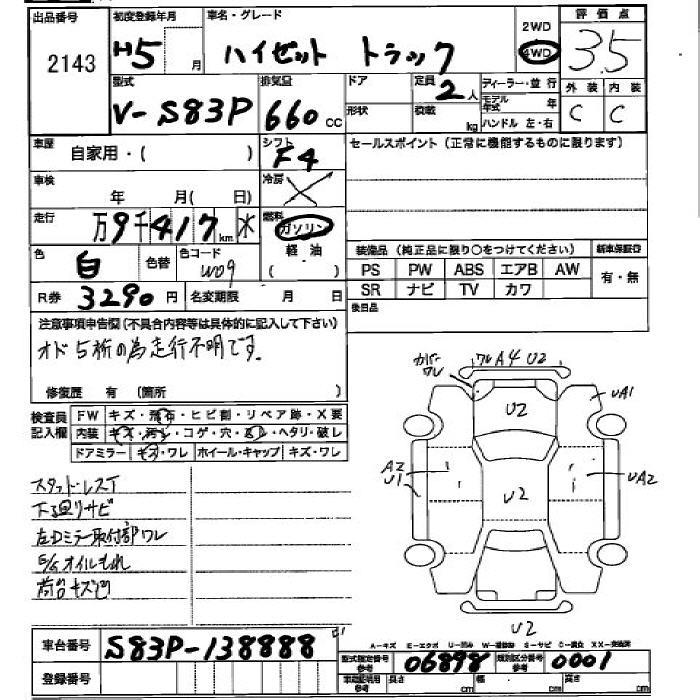 出品番号 2143
初度登録年月 H5 月
車名・グレード ハイゼット トラック
2WD
4WD
評価点 3.5
型式 V-S83P
排気量 660 cc
ドア
形状
定員 2人
積載 kg
ディーラー・並行
モデル年式 年
ハンドル 左・右
外装 C
内装 C
車歴 自家用・( )
シフト F4
セールスポイント(正常に機能するものに限ります)
車検 年 月( 日)
冷房 ×
走行 万9千417km
燃料 ガソリン
軽油
( )
色 白 色替 色コード W09
R券 3290円 名変期限 月 日
装備品(純正品に限り○をつけてください) 新車保証書
PS PW ABS エアB AW 有・無
SR ナビ TV カワ
後日品
注意事項申告欄(不具合内容等は具体的に記入して下さい)
オド5桁の為走行不明です。
修復歴 有 (箇所 )
検査員記入欄
FW キズ・飛石・ヒビ割・リペア跡・X要
内装 キズ・汚レ・コゲ・穴・ヘタリ・破レ
ドアミラー キズ・ワレ ホイール・キャップ キズ・ワレ
スタッドレスT
下回リサビ
左Dミラー取付部ワレ
オイルもれ
荷台キズ凹
カバーワレ
ワレA4 U2
U2
UA1
A2
U1
UA2
U2
U2
車台番号 S83P-138888
登録番号
A-キズ E-エクボ U-凹み W-補修跡 S-サビ C-腐食 XX-交換済
型式指定番号 参考 06898 類別区分番号 参考 0001
車庫証明用 参考 長さ cm 幅 cm 高さ cm